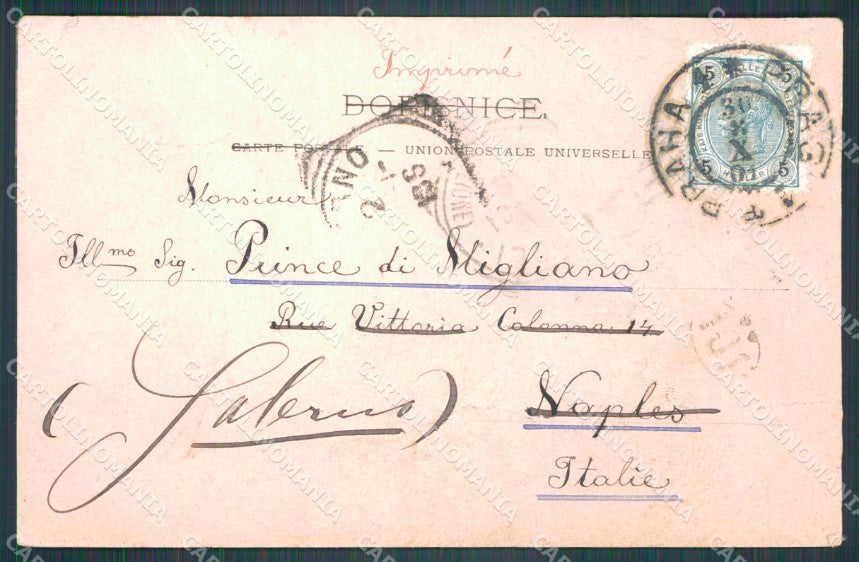 Imprimé
DOPISNICE.
CARTE POSTALE — UNION POSTALE UNIVERSELLE
5 5
5 5
PRAHA 1 * PRAG 1 *
30
X
Monsieur
Ill.mo Sig. Prince di Migliano
Rue Vittoria Colonna 14
(Salerno)
Naples
Italie
CARTOLINOMANIA